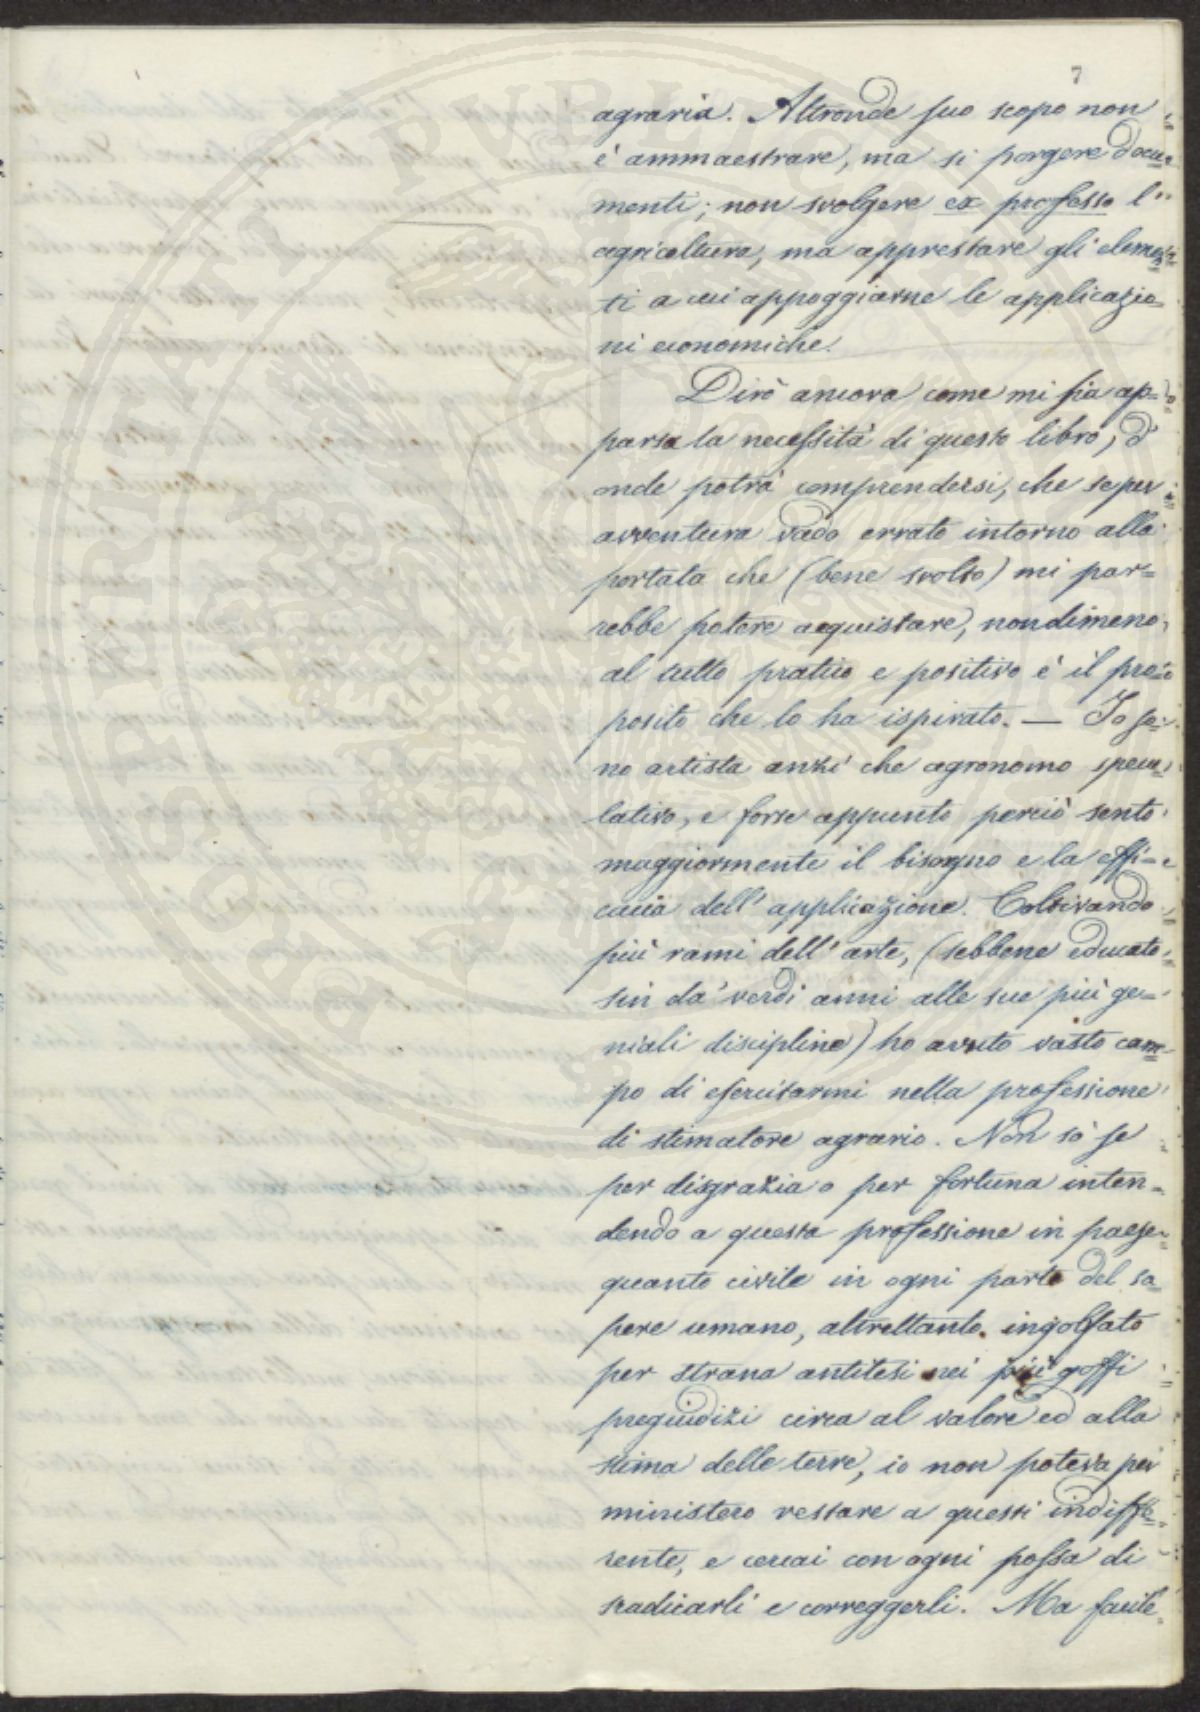 7
agraria. Altronde suo scopo non
è ammaestrare, ma si porgere docu=
menti; non svolgere ex professo l'
agricoltura, ma apprestare gli elemen=
ti a cui appoggiarne le applicazio=
ni economiche.
Dirò ancora come mi sia ap=
parsa la necessità di questo libro, d'
onde potrà comprendersi, che se per
avventura vado errato intorno alla
portata che (bene svolto) mi par=
rebbe potere acquistare, nondimeno
al tutto pratico e positivo è il pro=
posito che lo ha ispirato. — Io so=
no artista anzi che agronomo specu=
lativo, e forse appunto perciò sento
maggiormente il bisogno e la effi=
cacia dell' applicazione. Coltivando
più rami dell' arte, (sebbene educato
sin da' verdi anni alle sue più ge=
niali discipline) ho avuto vasto cam=
po di esercitarmi nella professione
di stimatore agrario. Non sò se
per disgrazia o per fortuna inten=
dendo a questa professione in paese
quanto civile in ogni parte del sa
pere umano, altrettanto ingolfato
per strana antitesi nei più goffi
pregiudizi circa al valore ed alla
stima delle terre, io non poteva per
ministero restare a questi indiffe=
rente, e cercai con ogni possa di
sradicarli e correggerli. Ma facile